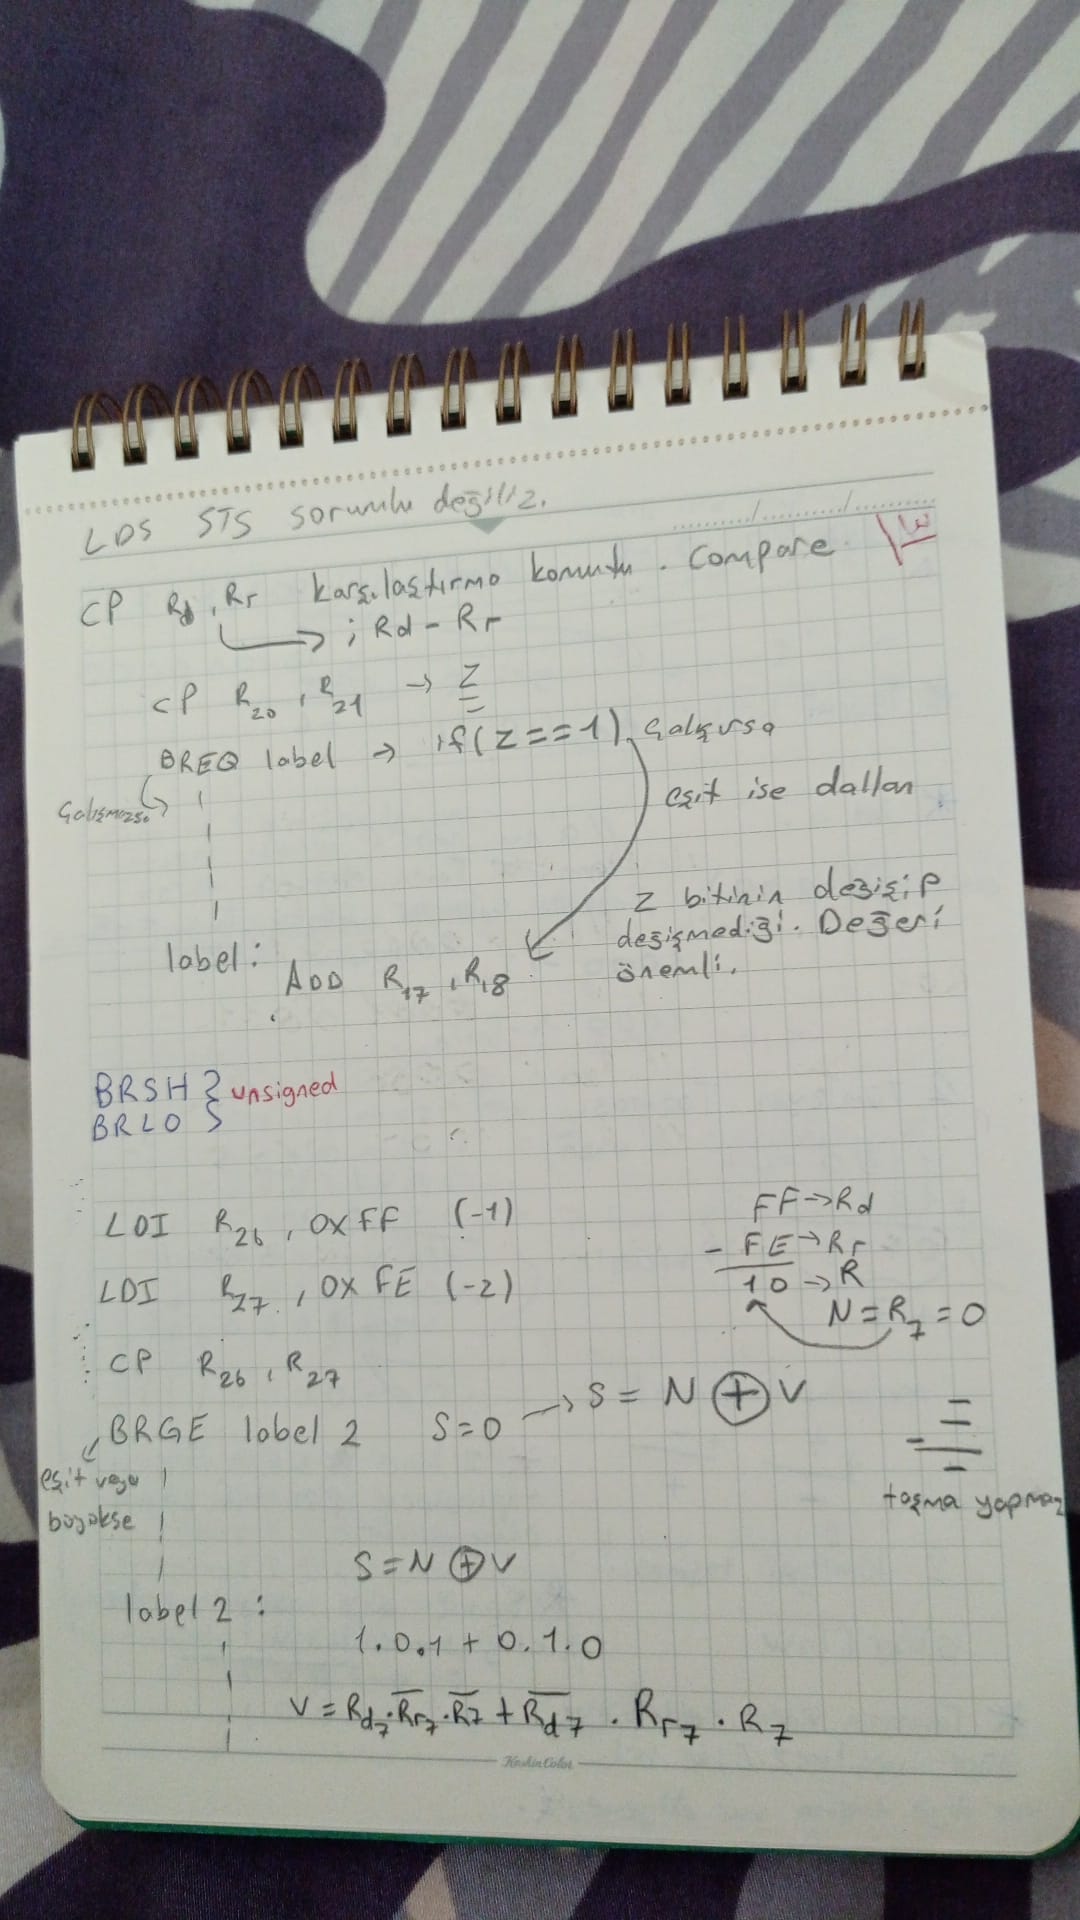 LDS STS sorumlu değiliz.
CP Rd, Rr karşılaştırma komutu. Compare
; Rd - Rr
CP R20, R21 → Z
BREQ label → if(Z==1) Çalışırsa
Çalışmazsa
eşit ise dallan
Z bitinin değişip
değişmediği. Değeri
önemli.
label:
ADD R17, R18
BRSH } unsigned
BRLO
LDI R26, 0xFF (-1)
LDI R27, 0xFE (-2)
CP R26, R27
BRGE label 2 S=0 → S = N ⊕ V
eşit veya
büyükse
FF → Rd
- FE → Rr
10 → R
N = R7 = 0
taşma yapmaz
S = N ⊕ V
label 2:
1.0.1 + 0.1.0
V = Rd7 . R̅r7 . R̅7 + R̅d7 . Rr7 . R7
KeskinColor